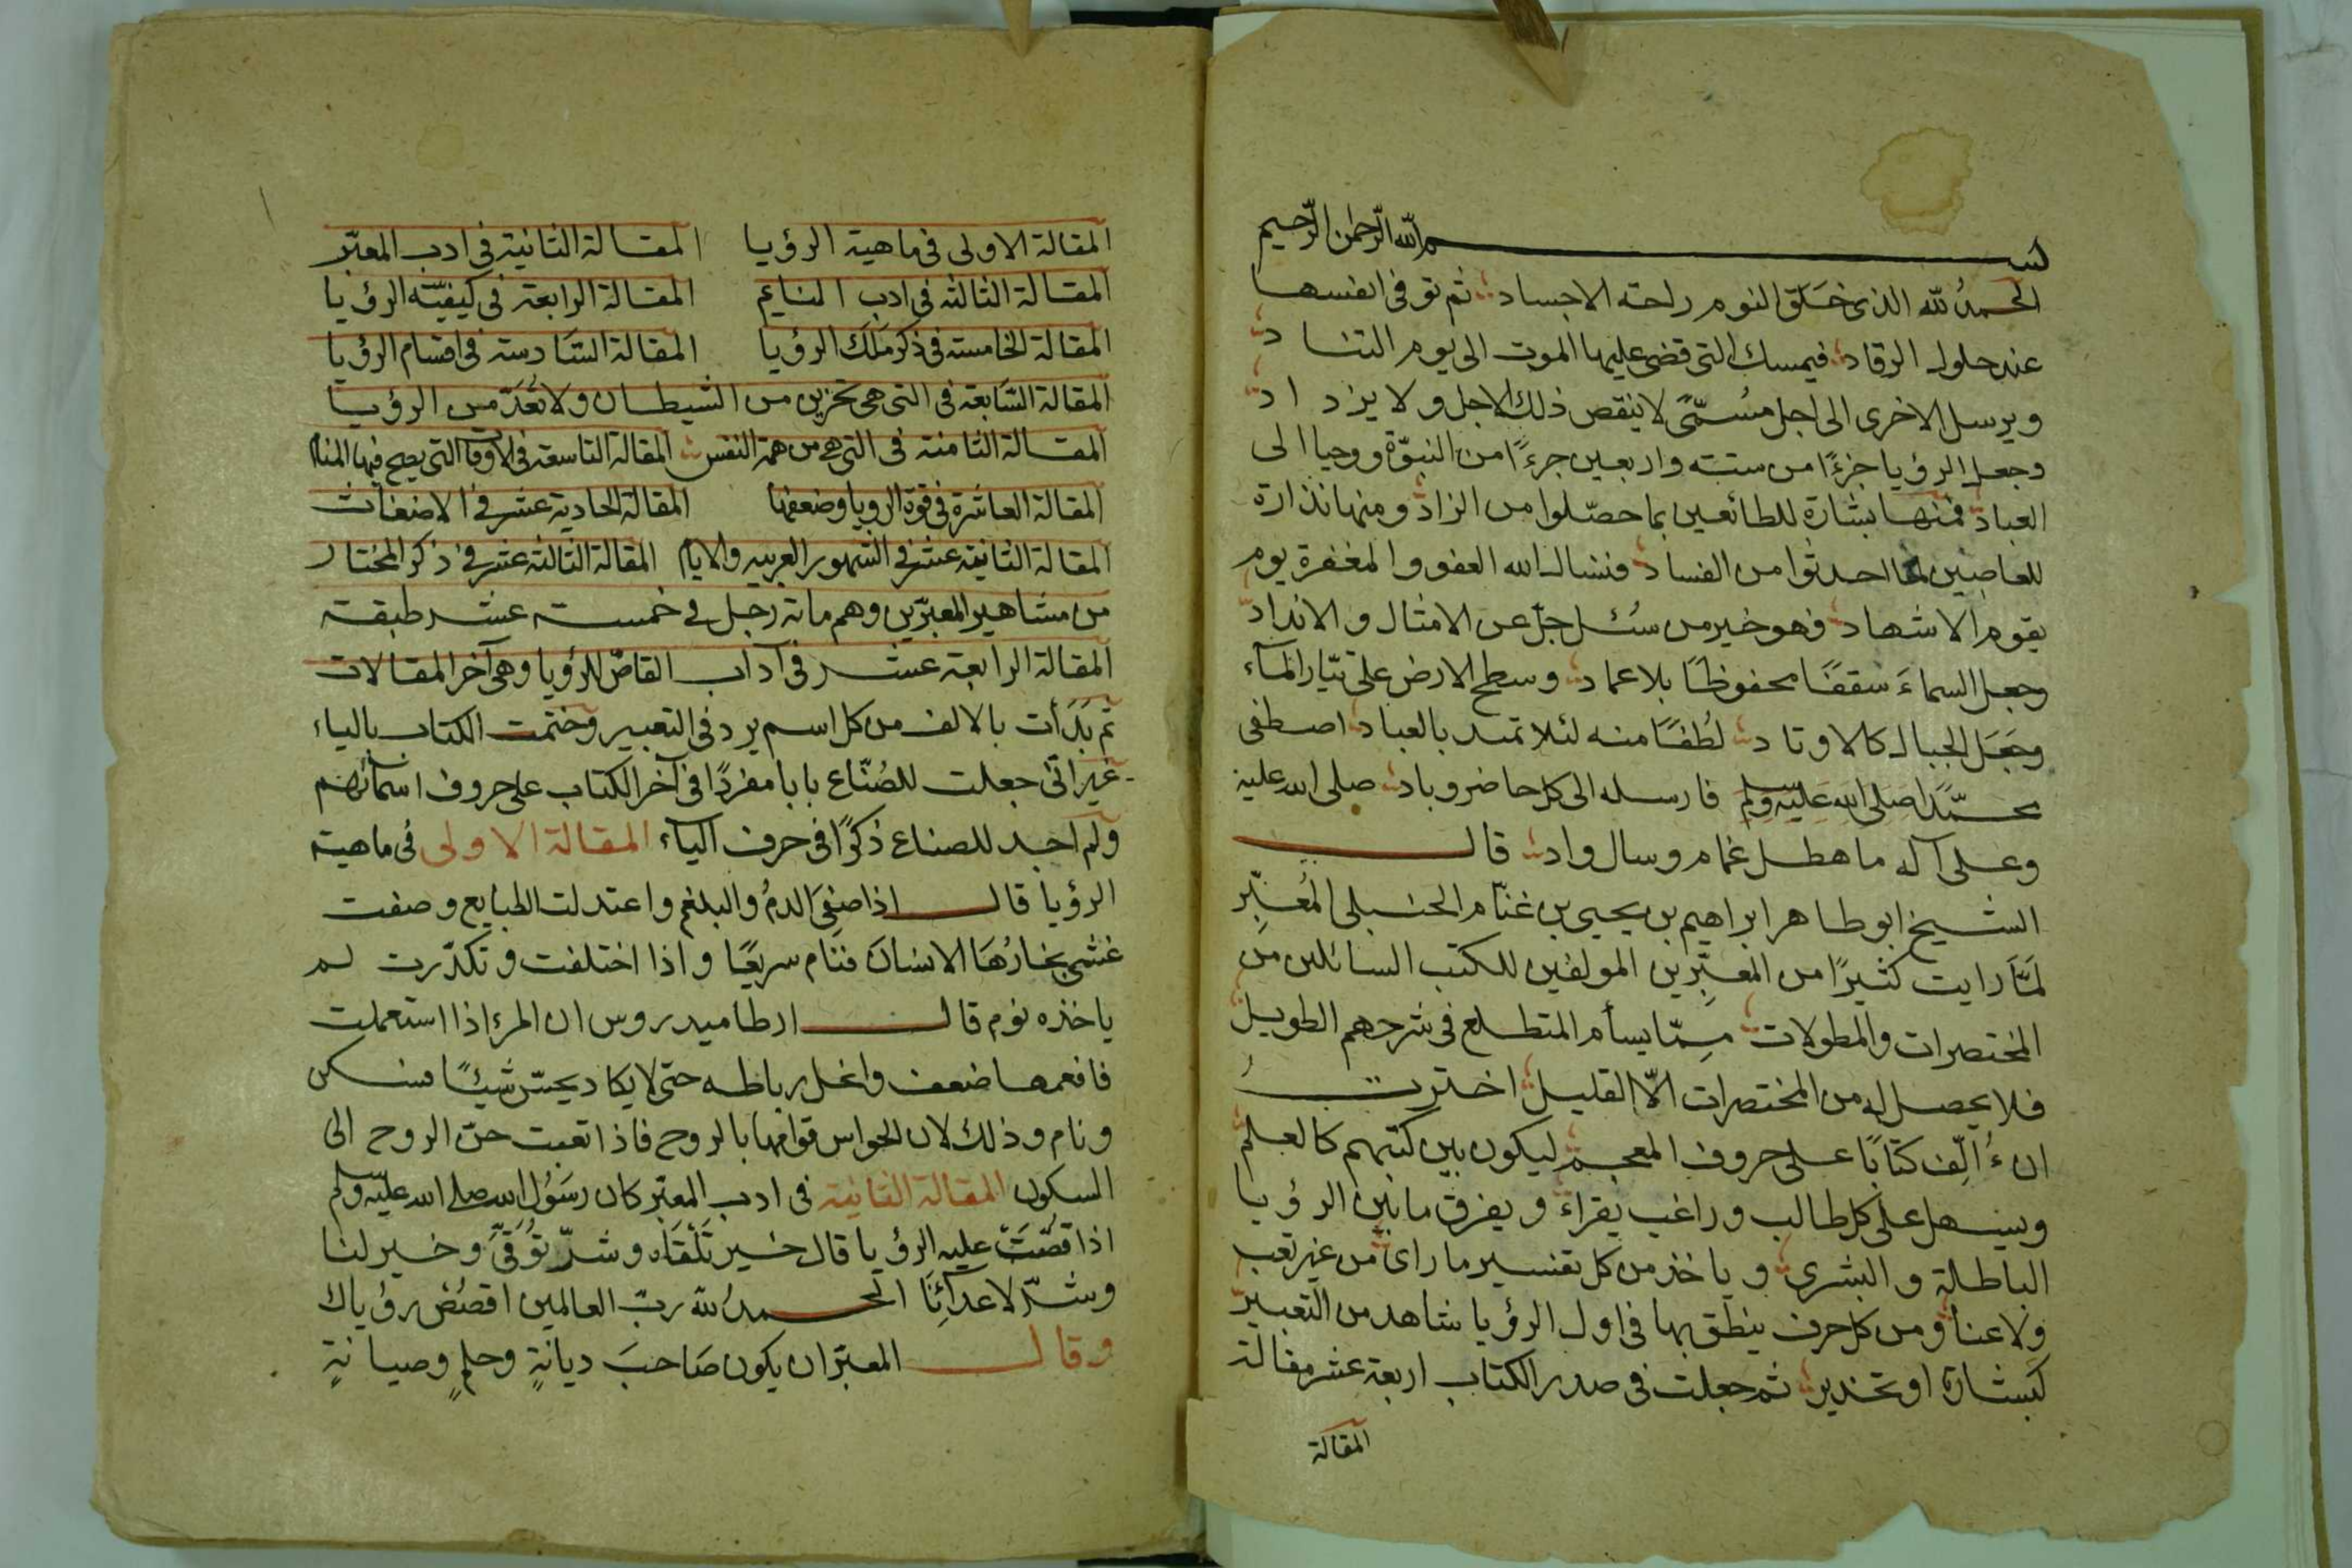 بسم الله الرحمن الرحيم
الحمدُ لله الذى خلق النوم راحته الاجساد ثم توفى انفسها
عند حلول الرقاد فيمسك التى قضى عليها الموت الى يوم التناد
ويرسل الاخرى الى اجل مسُمّىً لا ينقص ذلك الاجل ولا يزداد
وجعل الرؤيا جزءًا من ستته واربعين جزءًا من النبوّة ووحيا الى
العباد فمنها بشارة للطائعين بما حصّلوا من الزاد ومنها نذارة
للعاصين لما احدثوا من الفساد فنسال الله العفو والمغفرة يوم
يقوم الاشهاد فهو خير من سُئل جلّ عن الامثال والانداد
وجعل السماءَ سقفًا محفوظًا بلا عماد وسطح الارض على تيّار المآء
وجَعَل الجبال كالاوتاد لُطفًا منه لئلا تمتد بالعباد اصطفى
محمّدًا صلى الله عليه وسلم فارسله الى كل حاضر وباد صلى الله عليه
وعلى آله ما هطل غمام وسال واد قال
الشيخ ابو طاهر ابراهيم بن يحيى بن غنّام الحنبلى المُعَبِّر
لمّا رايت كثيرًا من المعبِّرين المولفين للكتب السائلين من
المختصرات والمطولات مِمّا يسأم المتطلع فى شرحهم الطويل
فلا يحصل له من المختصرات الّا القليل اخترتُ
ان ءُالِّف كتابًا على حروف المعجم ليكون بين كتبهم كالعلم
ويسهل على كل طالب وراغب يقراءَ ويفرق ما بين الرؤيا
الباطلة والبشرى وياخذ من كل تفسير ما راى من غير تعب
ولا عنأ ومن كل حرف ينطق بها فى اول الرؤيا شاهد من التعبير
كبشارة او تحذير ثم جعلت فى صدر الكتاب اربعة عشر مقالة
المقالة
المقالة الاولى فى ماهية الرؤيا المقالة الثانية فى ادب المعبّر
المقالة الثالثه فى ادب المنايم المقالة الرابعة فى كيفيّته الرؤيا
المقالة الخامسته فى ذكر مَلَك الرؤيا المقالة السّادسته فى اقسام الرؤيا
المقالة السّابعة فى التى هى تحزين من الشيطان ولا تُعَدّ من الرؤيا
المقالة الثامنة فى التى هى من همة النفس المقالة التاسعة فى الاوقات التى يصح فيها المنام
المقالة العاشرة فى قوة الرويا وضعفها المقالة الحادية عشر فى الاضغاث
المقالة الثانية عشر فى الشهور العربيه والايام المقالة الثالثة عشر فى ذكر المختار
من مشاهير المعبّرين وهم ماىة رجل فى خمسته عشر طبقته
المقالة الرابعة عشر فى آداب القاصّ للرؤيا وهى آخر المقالات
ثم بَدَأت بالالف من كل اسم يرد فى التعبير وختمت الكتاب بالياء
غير انّى جعلت للصُنّاع بابا مفردًا فى آخر الكتاب على حروف اسمائهم
ولم اجد للصناع ذكرًا فى حرف اليآء المقالة الاولى فى ماهية
الرؤيا قال اذا صفىَ الدمُ والبلغم واعتدلت الطبايع وصفت
غشى بخارُهَا الانسانَ فنام سريعًا واذا اختلفت وتكدّرت لم
ياخذه نوم قال ارطاميدروس ان المرء اذا استعملت
فافعمها ضعف وانحل رباطه حتى لا يكاد يحسّ شيئًا فسكن
ونام وذلك لان الحواس قوامها بالروح فاذا تعبت حنّ الروح الى
السكون المقالة الثانية فى ادب المعبّر كان رسَوُل الله صلى الله عليه وسلم
اذا قصُّتَ عليه الرؤيا قال خير تَلْقَاه وشرّ تُوَقّىَ وخير لنا
وشرّ لاعدآئِنَا الحمدُ لله ربّ العالمين اقصُص رؤياك
وقال المعبّر ان يكون صَاحبَ ديانةٍ وحلمٍ وصيانةٍ